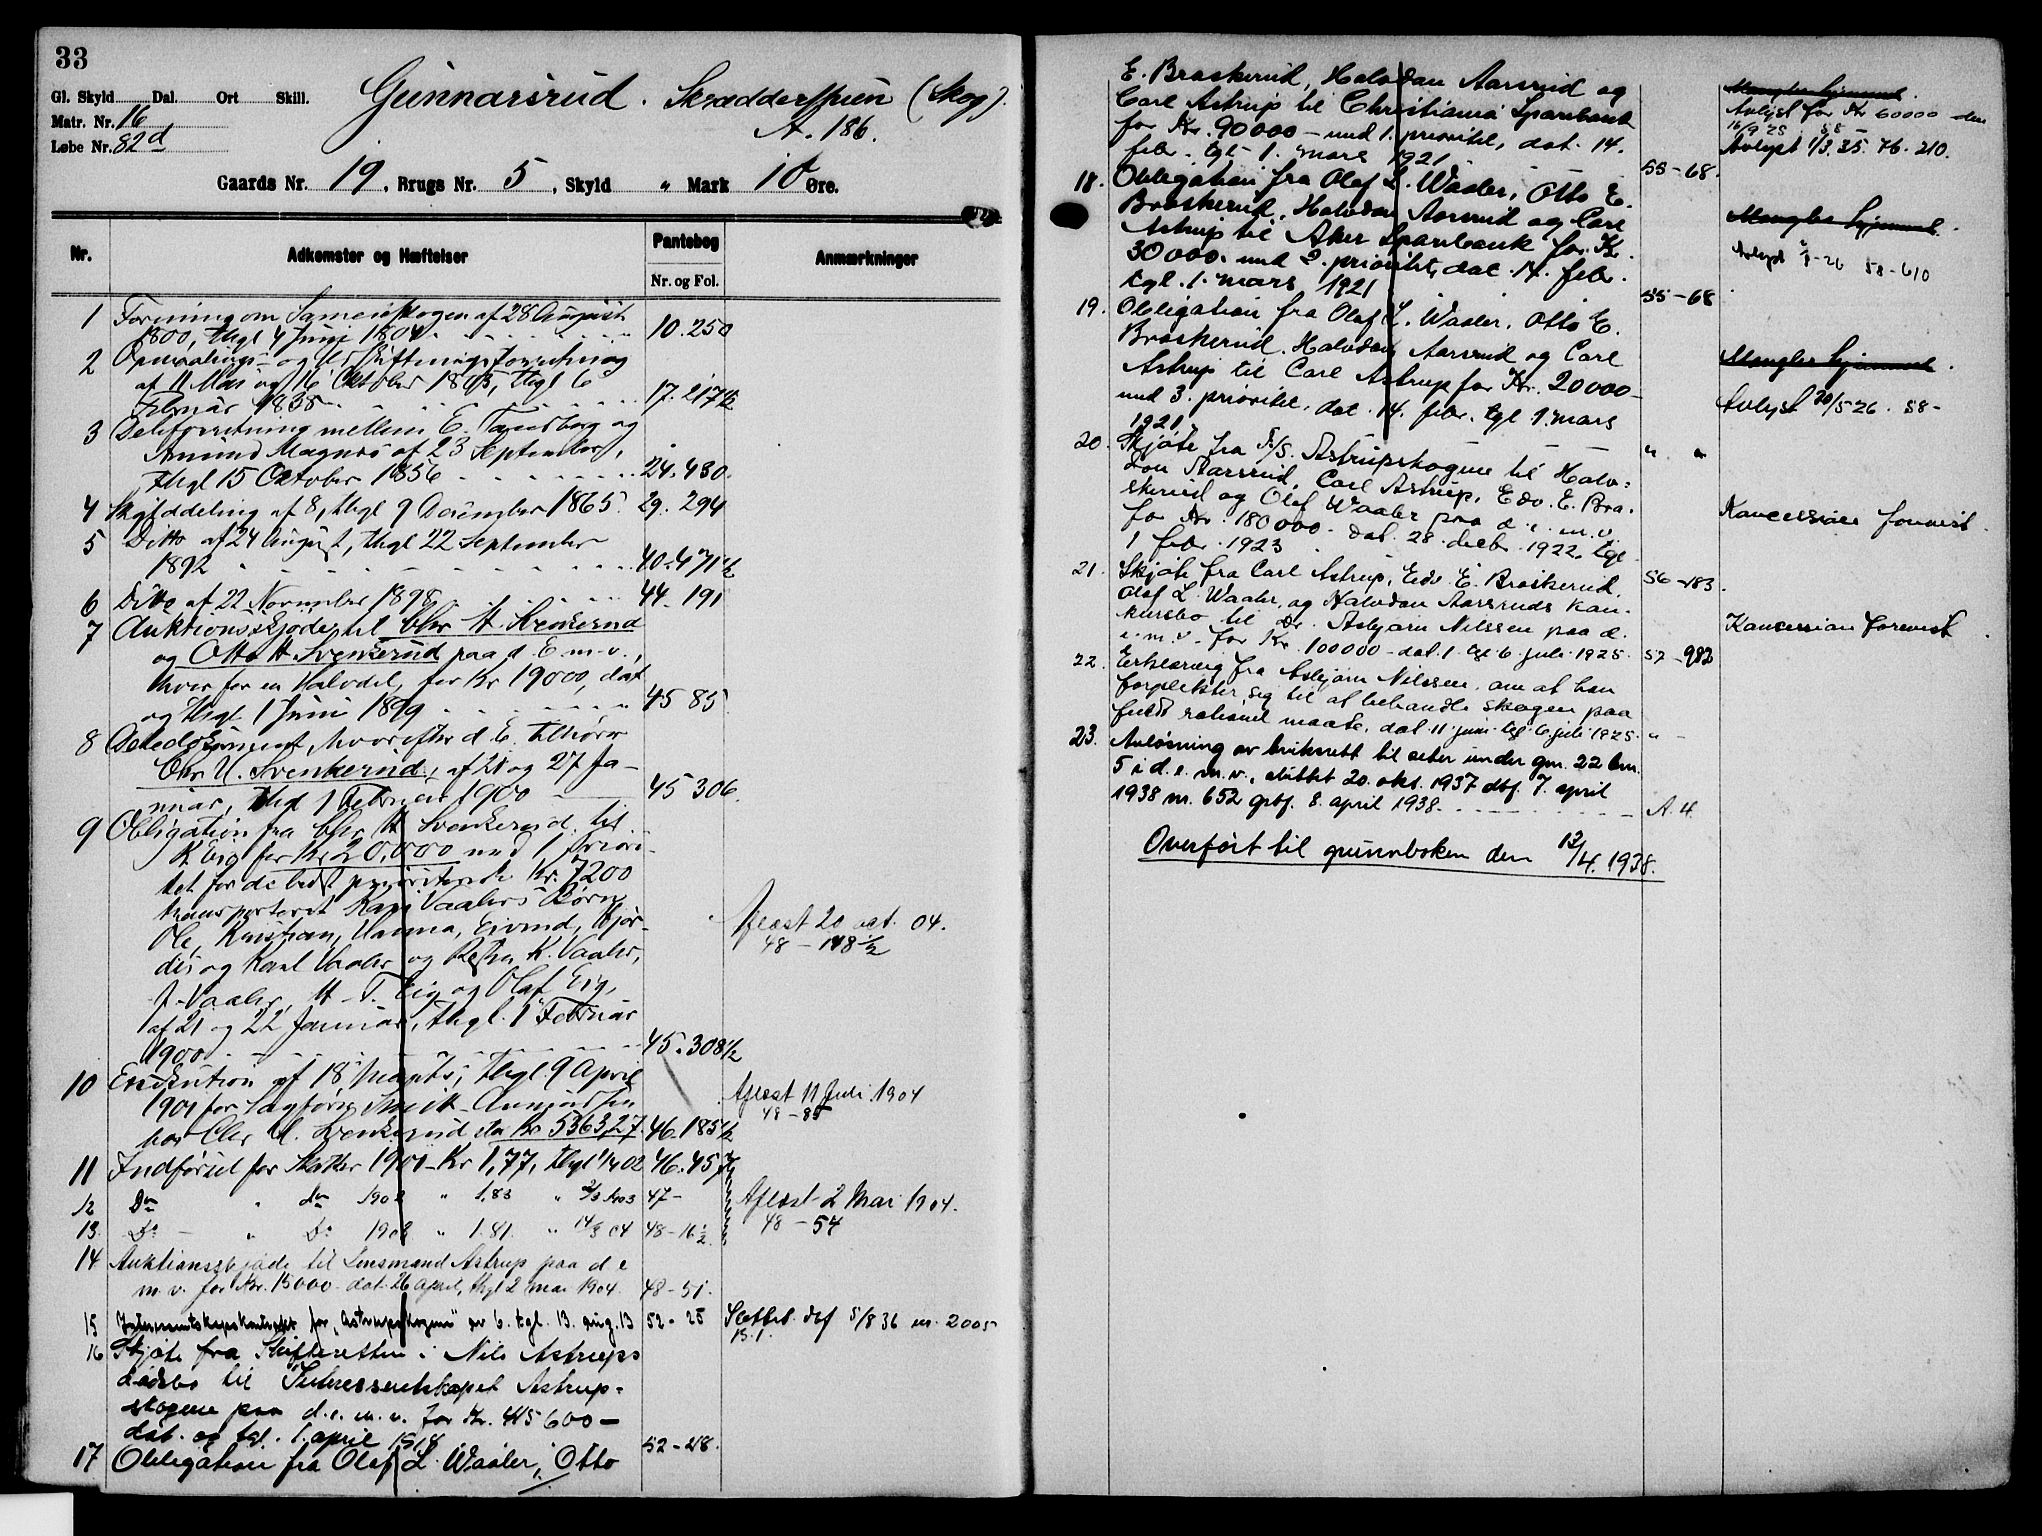 33
Gl. Skyld Dal. Ort Skill.
Matr. Nr. 16
Løbe Nr. 82d
Gunnarsrud. (Skog).
A. 186.
Gaards Nr. 19, Brugs Nr. 5, Skyld " Mark 10 Øre.
Nr. Adkomster og Hæftelser Pantebog Anmærkninger
Nr. og Fol.
1 Forening om Sameieskogen af 28 August
1800, thgl 4 Juni 1804 10.250
2 Opmaalings- og Udskiftningsforretning
af 11 Mai og 16 Oktober 1835, thgl 6
Februar 1838 17.217½
3 Deleforretning mellem E. og
Amund Magnus af 23 September,
thgl 15 Oktober 1856 24.480.
4 Skylddeling af 8, thgl 9 December 1865. 29.294
5 Ditto af 24 August, thgl 22 September
1892 40.471½
6 Ditto af 22 November 1898 44.191
7 Auktionsskjøde til Chr. H. Svenkerud
og Otto H. Svenkerud paa d. E. m. v.,
hver for en Halvdel, for Kr 19000, dat
og thgl 1 Juni 1899 45 85
8 Deledokument, hvorefter d. E. tilhører
Chr. H. Svenkerud, af 21 og 27 Ja-
nuar, thgl 1 Februar 1900 45 306.
9 Obligation fra Chr H Svenkerud til
K. Eig for Kr 20,000 med 1 Priori-
tet for de bedst prioriterede Kr. 7200
transporteret Karl Vaalers Børn
Ole, Kristian, Hanna, Eivind, Hjør-
dis og Karl Vaaler og K. Vaaler,
J. Vaaler, H. T. Eig og Olaf Eig,
af 21 og 22 Januar, thgl. 1 Februar
1900 45.308½
Aflæst 20 oct. 04.
48 - 148½
10 Exekution af 18 Marts, thgl. 9 April
1901 for Sagfører Amundsen
hos Chr H. Svenkerud for Kr 5363,27. 46.185½
Aflæst 11 Juli 1904
48 - 85
11 Indførsel for Skatter 1901 Kr 1,77, thgl 1/4 02 46.457½
12 Do " do 1902 " 1.83 " 2/3 1903 47 -
Aflæst 2 Mai 1904.
13. Do - " Do 1903 " 1.81 " 14/3 04 48 - 16½
48 - 54
14 Auktionsskjøde til Lensmand Astrup paa d e
m. v. for Kr. 15000 dat. 26 april, thgl 2 mai 1904. 48 - 51.
15 Interessentskapskontrakt for "Astrupskogene" av 6. tgl. 13. aug. 13 52 - 25 Slettet. dbf 5/8 36 nr. 2005
16 Skjøte fra Skifteretten i Nils Astrups
dødsbo til Interessentskapet Astrup-
skogene paa d. e. m. v. for Kr. 415600 -
dat. og tgl. 1. april 1918 52 - 218.
17 Obligation fra Olaf L. Waaler, Otto
E. Braskerud, Halvdan Aarsrud og
Carl Astrup til Christiania Sparebank
for Kr. 90000 - med 1. prioritet, dat. 14.
febr. tgl. 1. mars 1921 55 - 68.
Mangler hjemmel.
Avlyst for Kr 60000 den
16/9 25 58 -
Avlyst 1/3.35. 76. 210.
18. Obligation fra Olaf L. Waaler, Otto E.
Braskerud, Halvdan Aarsrud og Carl
Astrup til Aker Sparebank for Kr.
30000. med 2. prioritet, dat. 14. febr.
tgl. 1. mars 1921 55 - 68
Mangler hjemmel.
58 - 610
19. Obligation fra Olaf L. Waaler, Otto E.
Braskerud, Halvdan Aarsrud og Carl
Astrup til Carl Astrup for Kr. 20000 -
med 3. prioritet, dat. 14. febr. tgl. 1. mars
1921. " "
Mangler hjemmel.
Avlyst 20/5 26. 58 -
20. Skjøte fra I/S. Astrupskogene til Halv-
dan Aarsrud, Carl Astrup, Edv. E. Bra-
skerud og Olaf Waaler paa d. e. m. v.
for Kr. 180000 - dat. 28. decbr. 1922, tgl.
1 febr. 1923 56 - 183.
Koncession forevist.
21. Skjøte fra Carl Astrup, Edv. E. Braskerud,
Olaf L. Waaler, og Halvdan Aarsruds kon-
kursbo til Dr. Asbjørn Nilssen paa d.
e. m. v. for Kr. 100000 - dat. 1. tgl 6. juli 1925. 57 - 982
Koncession forevist.
22. Erklæring fra Asbjørn Nilssen, om at han
forplikter seg til at behandle skogen paa
fuldt rationel maate, dat. 11. juni tgl 6. juli 1925. "
23. Avløsning av bruksrett til seter under gnr. 22 bnr.
5 i d. e. m. v., sluttet 20. okt. 1937 dbf. 7. april
1938 nr. 652 grbf. 8. april 1938. A. 4.
Overført til grunnboken den 12/4. 1938.